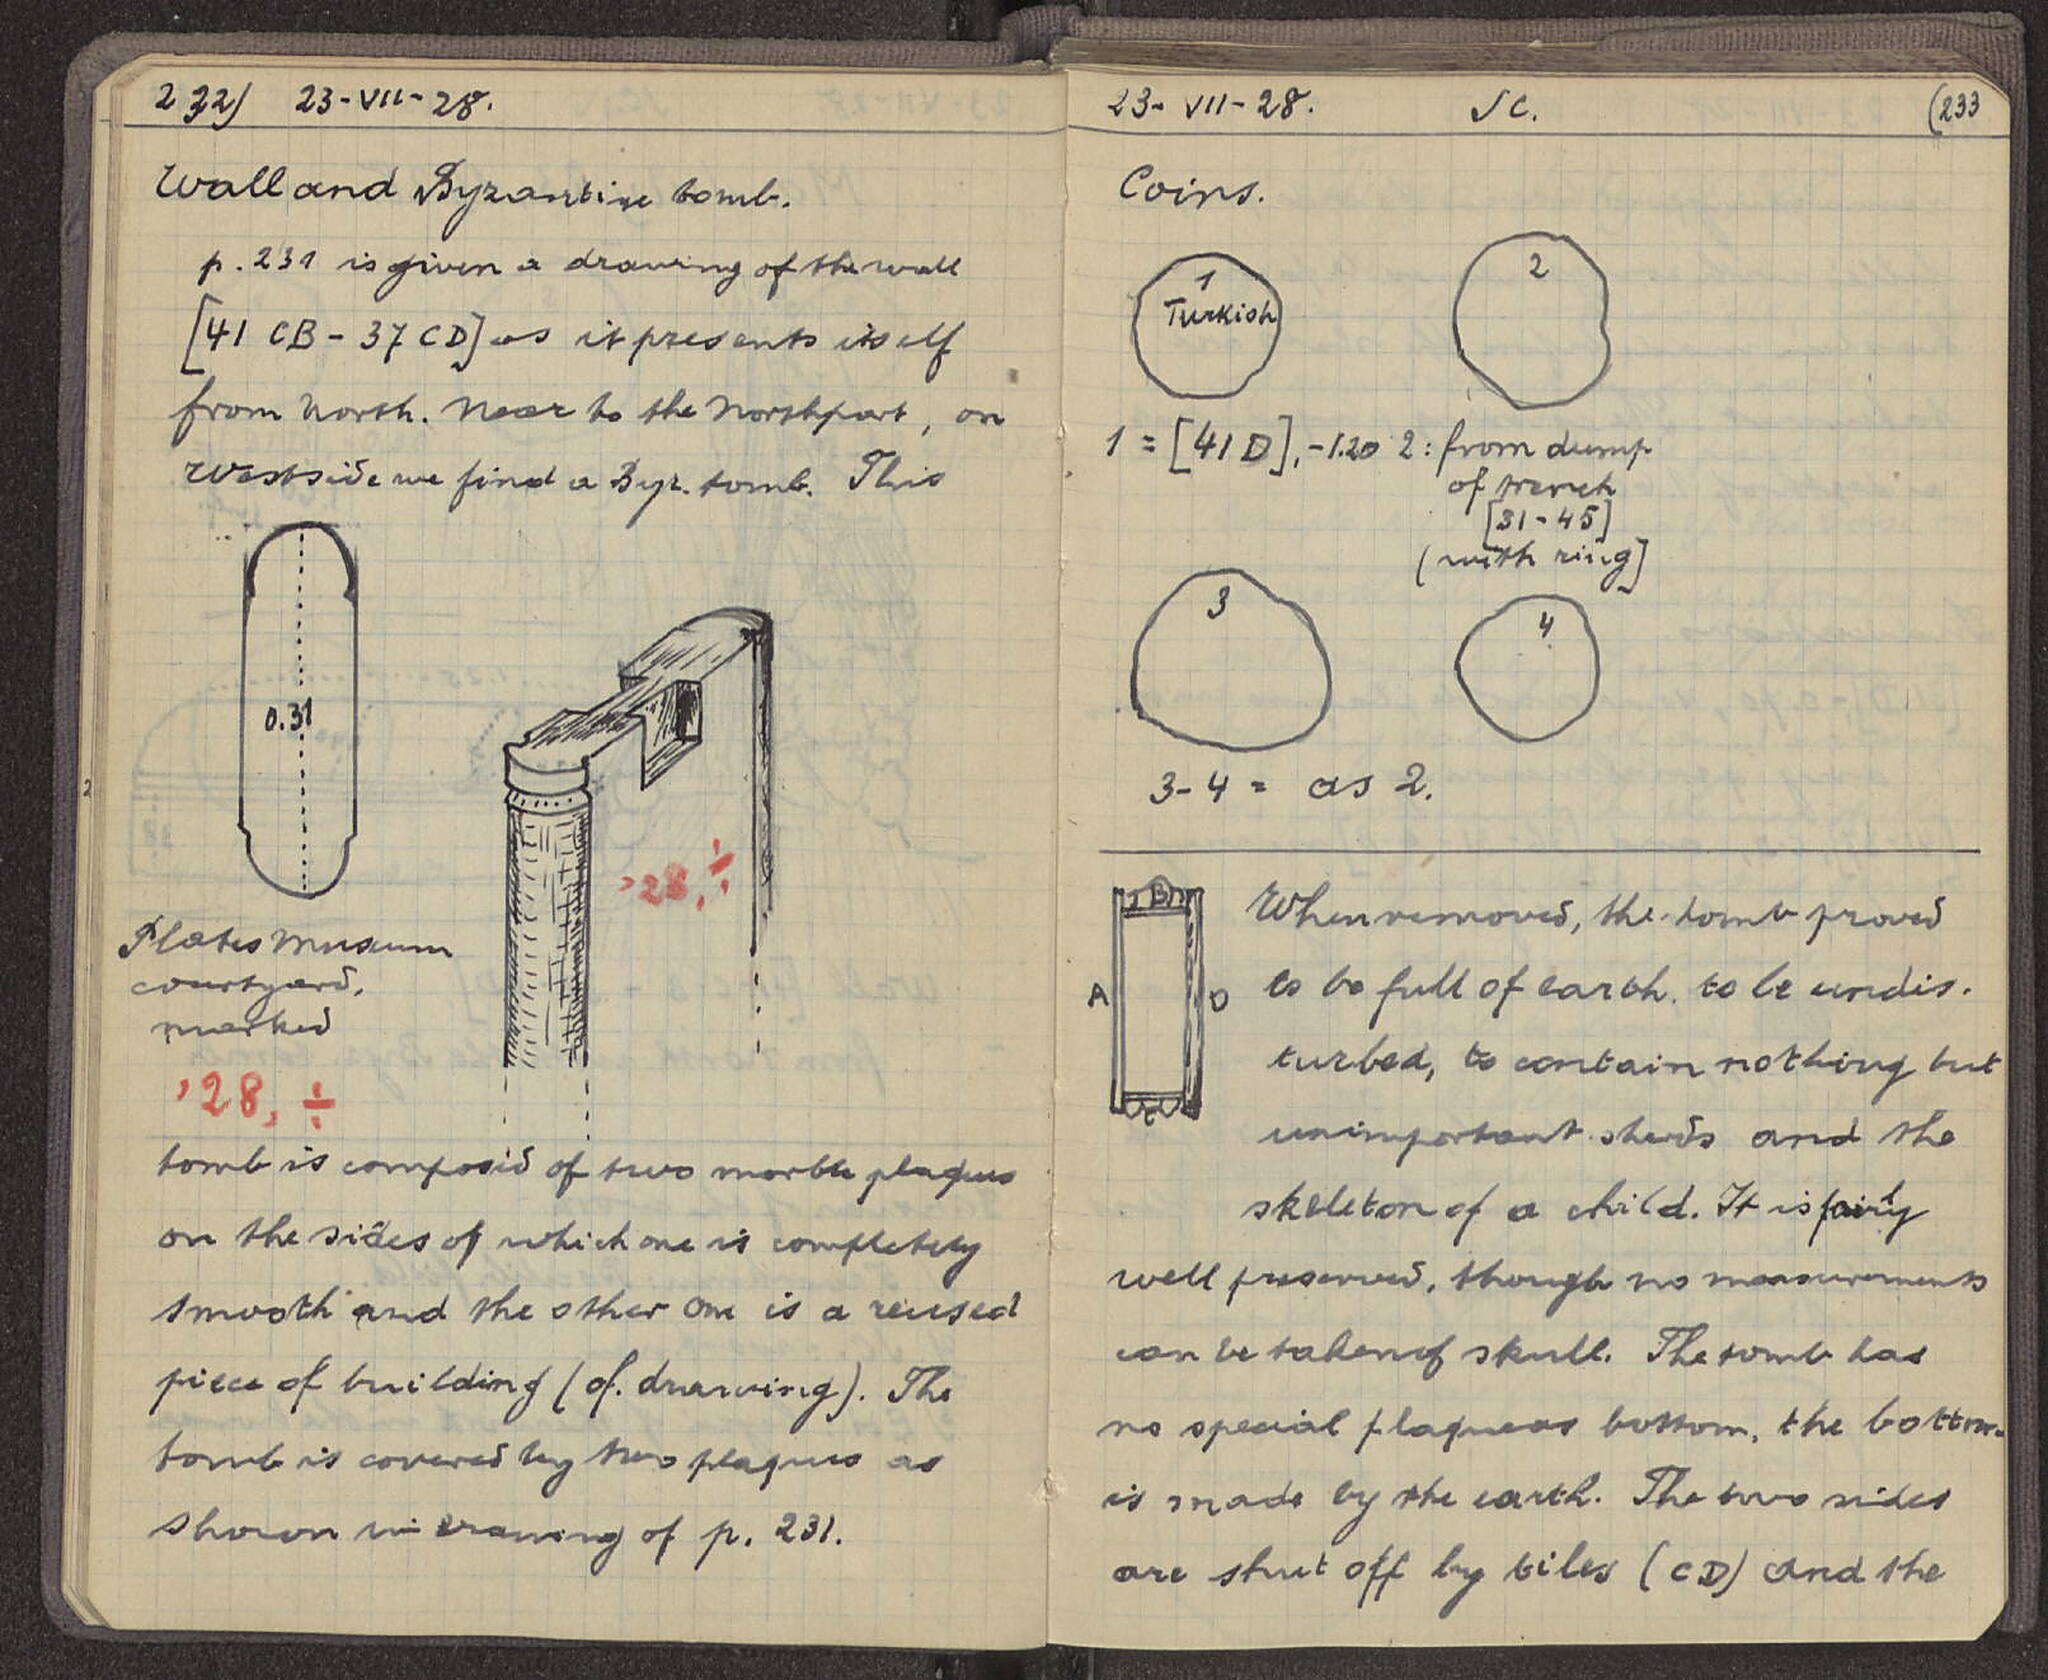 232) 23-VII-28.
Wall and Byzantine tomb.
p. 231 is given a drawing of the wall
[41 CB - 37 CD] as it presents itself
from North. Near to the Northpart, on
Westside we find a Byz. tomb. This
0.31
Plates Museum
courtyard,
marked
'28, ÷
'28, ÷
tomb is composed of two marble plaques
on the sides of which one is completely
smooth and the other one is a reused
piece of building (cf. drawing). The
tomb is covered by two plaques as
shown in drawing of p. 231.
23-VII-28. (233
Coins.
1
Turkish
2
1 = [41 D], -1.20 2: from dump
of trench
[31-45]
(with ring]
3
4
3-4 = as 2.
B
A D
C
When removed, the tomb proved
to be full of earth, to be undis-
turbed, to contain nothing but
unimportant sherds and the
skeleton of a child. It is fairly
well preserved, though no measurements
can be taken of skull. The tomb has
no special plaque as bottom, the bottom
is made by the earth. The two sides
are shut off by tiles (CD) and the